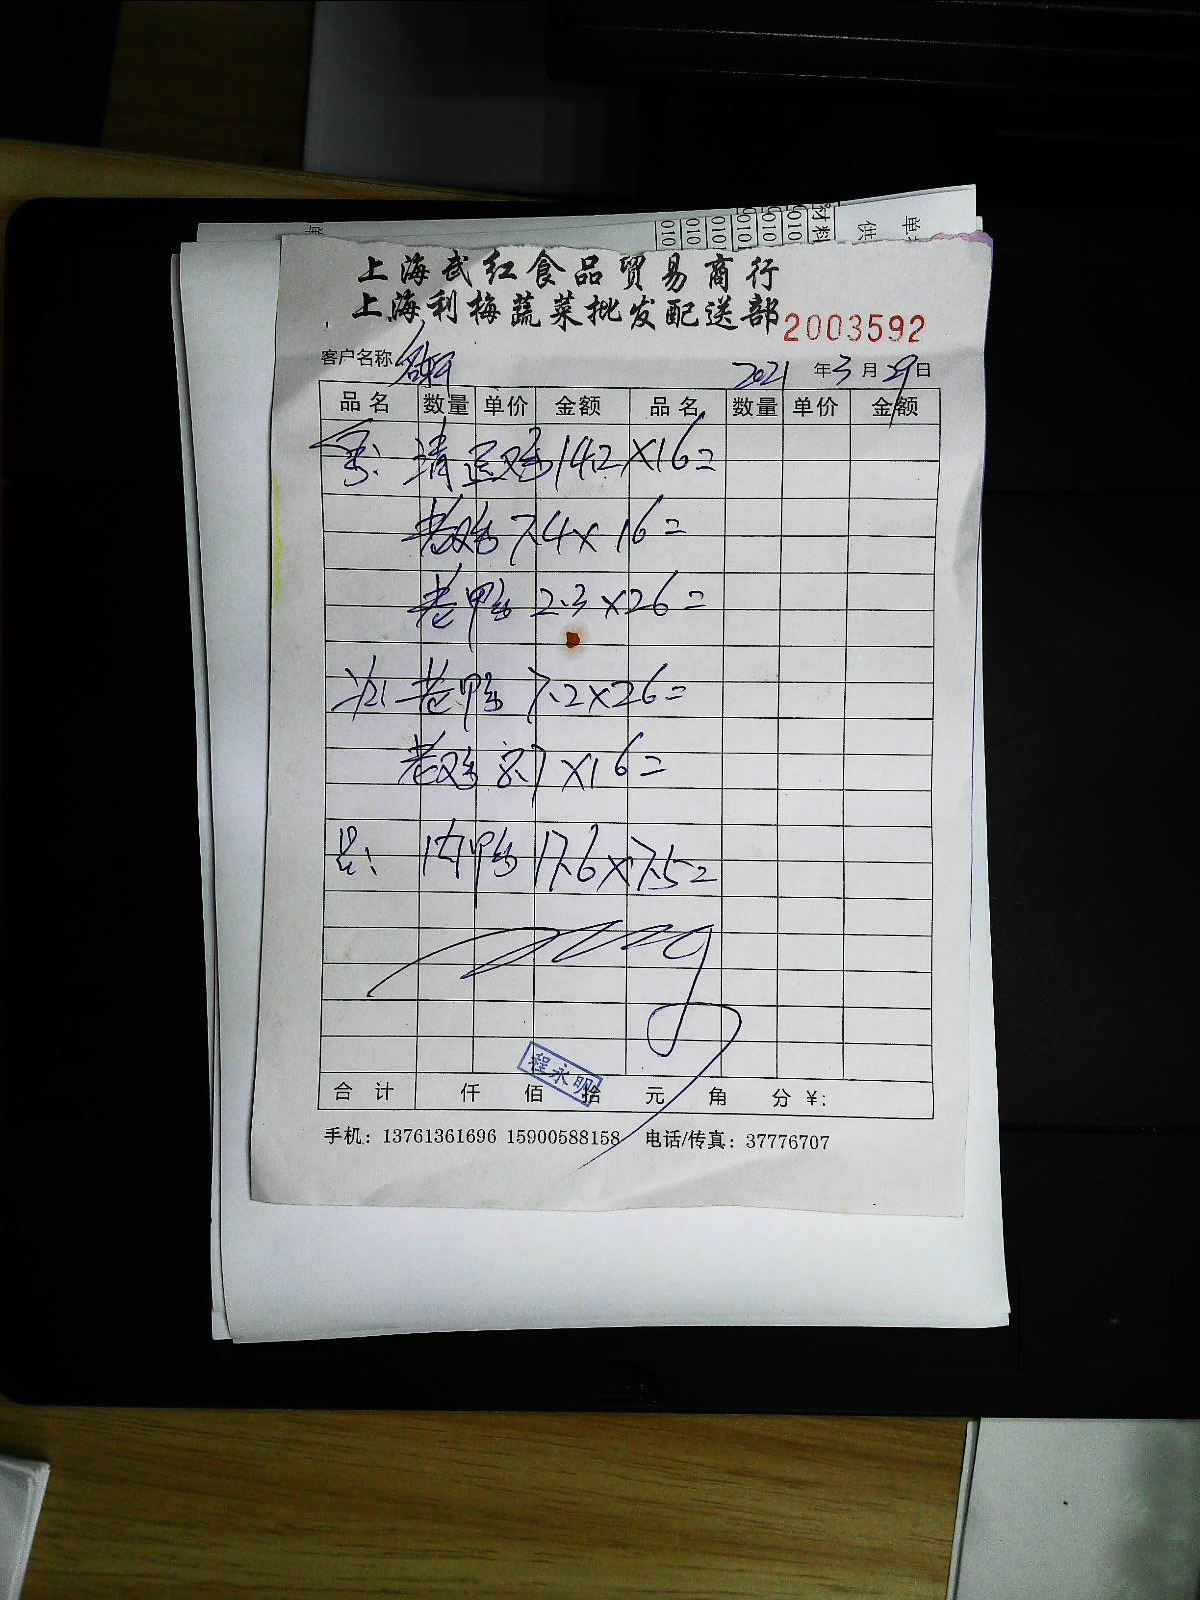 上海武红食品贸易商行
上海利梅蔬菜批发配送部 2003592
客户名称 2021 年 3 月 29 日
品名 数量 单价 金额 品名 数量 单价 金额
清远鸡 14.2×16=
老鸡 7.4×16=
老鸭 2.3×26=
老鸭 7.2×26=
老鸡 8.7×16=
肉鸭 17.6×7.5=
程永明
合计 仟 佰 拾 元 角 分 ¥:
手机: 13761361696 15900588158 电话/传真: 37776707
010 010 010 010 010 010 材料 供 单